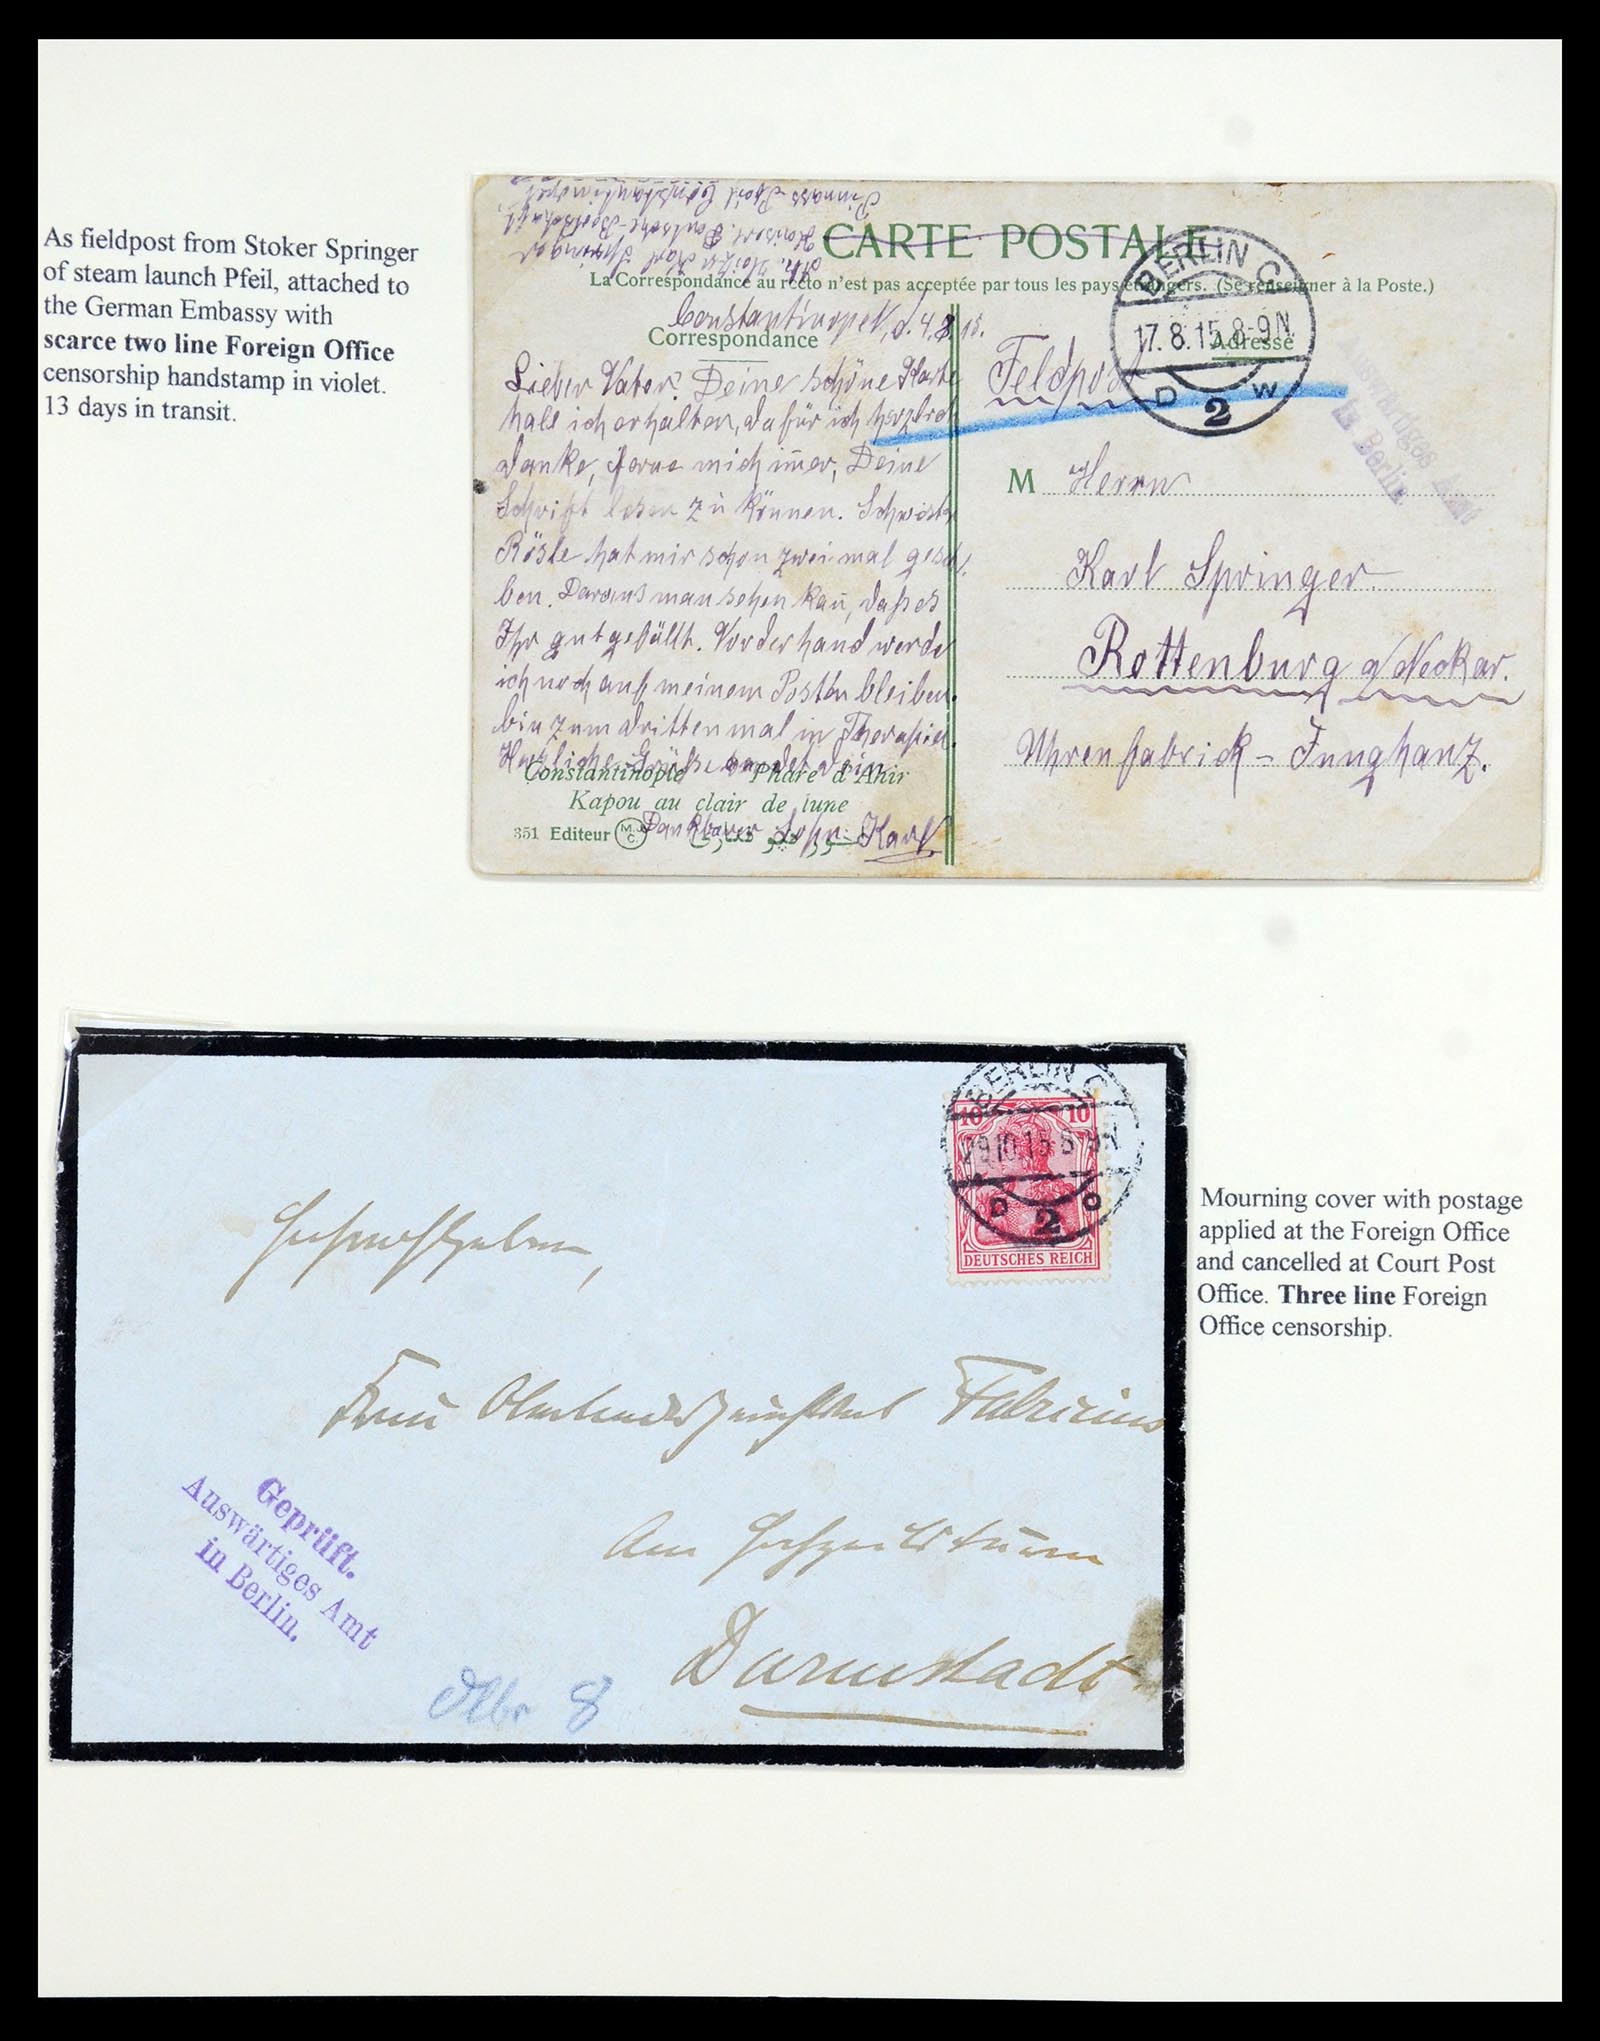 As fieldpost from Stoker Springer
of steam launch Pfeil, attached to
the German Embassy with
scarce two line Foreign Office
censorship handstamp in violet.
13 days in transit.
Karl Springer
Deutsche-Botschaft
Constantinopel
CARTE POSTALE
La Correspondance au recto n'est pas acceptée par tous les pays étrangers. (Se renseigner à la Poste.)
Constantinopel, d. 4.8.15.
Correspondance
Lieber Vater! Deine schöne Karte
hab ich erhalten, dafür ich herzlich
danke, mich immer, Deine
Schrift lesen zu können. Schwester
Rösle hat mir schon zweimal geschr.
ben. Daraus man sehen kan̄, daß es
Ihr gut gefällt. Vorderhand werde
ich noch auf meinem Posten bleiben.
bin zum drittenmal in Therapia.
Herzliche Grüße sendet Dein
Dankbarer Sohn Karl
Constantinople Phare d'Ahir
Kapou au clair de lune
351 Editeur M.J.C.
Adresse
BERLIN C
17.8.15.8-9N
D 2 W
Feldpost
Auswärtiges Amt
in Berlin.
M Herrn
Karl Springer
Rottenburg a/Neckar.
Uhrenfabrick - Junghanz.
BERLIN C
29.10.15 8-9N
D 2 O
10 10
DEUTSCHES REICH
Frau Fabricius
Am Hochzeitsturm
Darmstadt
Geprüft.
Auswärtiges Amt
in Berlin.
8
Mourning cover with postage
applied at the Foreign Office
and cancelled at Court Post
Office. Three line Foreign
Office censorship.